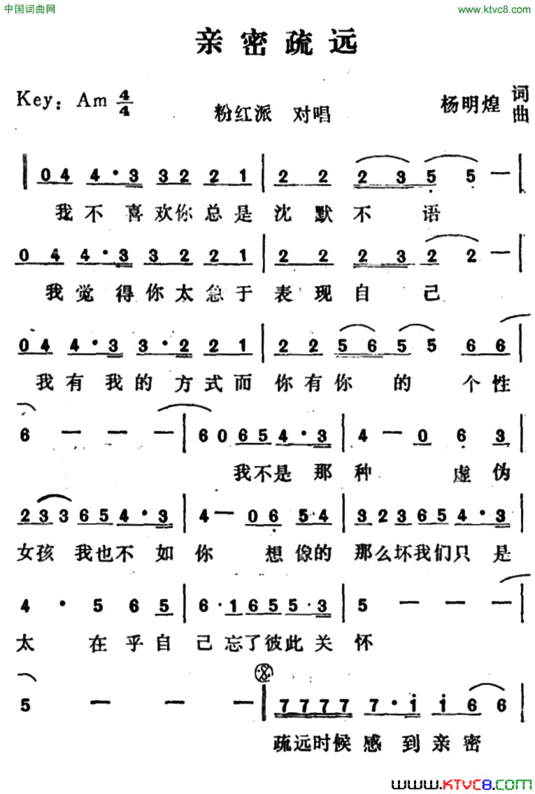 中国词曲网
www.ktvc8.com
亲密疏远
Key: Am 4/4
粉红派 对唱
杨明煌 词曲
0 4 4·3 3 2 2 1 | 2 2 2 3 5 5 - |
我不喜欢你总是沈默不语
0 4 4·3 3 2 2 1 | 2 2 2 3 2 2 - |
我觉得你太急于表现自己
0 4 4·3 3·2 2 1 | 2 2 5 6 5 5 6 6 |
我有我的方式而你有你的个性
6 - - - | 6 0 6 5 4·3 | 4 - 0 6 3 |
我不是那种虚伪
2 3 3 3 6 5 4·3 | 4 - 0 6 5 4 | 3 2 3 6 5 4·3 |
女孩我也不如你想像的那么坏我们只是
4 · 5 6 5 | 6·1 6 5 5·5 | 5 - - - |
太在乎自己忘了彼此关怀
5 - - - | 7 7 7 7 7·i i 6 6 |
疏远时候感到亲密
www.KTVC8.com